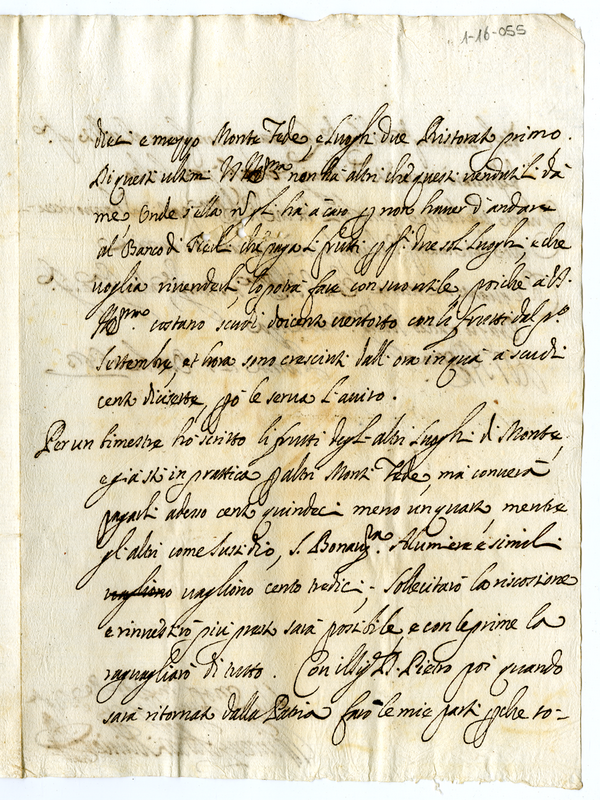 1-16-055
dieci e mezzo Monte Fede, e luoghi due Ristorati primo.
Di questi ultimi V. Ill.ma non ha altri che questi vendutili da
me, onde s'ella n' gl' ha a caro p non haver d'andare
al Banco di che paga li frutti p si due soli luoghi, e che
voglia rivenderli, lo potrà fare con suo utile, poiche a V.
Ill.mo costano scudi doicento ventotto con li frutti del p.o
Settembre, et hora sono cresciuti dall' ora in quà a scudi
cento dicisette, p.ò le serva l'aviso.
Per un bimestre hò scritto li frutti degl' altri luoghi di Monte,
e già stò in prattica p altri Monti Fede, mà converrà
pagarli adesso cento quindeci meno un quarto, mentre
gl' altri come Sussidio, S. Bonav.ra Alumiere e simili
vagliono vagliono cento tredici, - Sollecitarò la riscossione
e rinvestirò più presto sarà possibile, e con le prime la
raguagliarò di tutto. Con ill' S.r D. Pietro poi quando
sarà ritornato dalla Patria farò le mie parti, p che to-